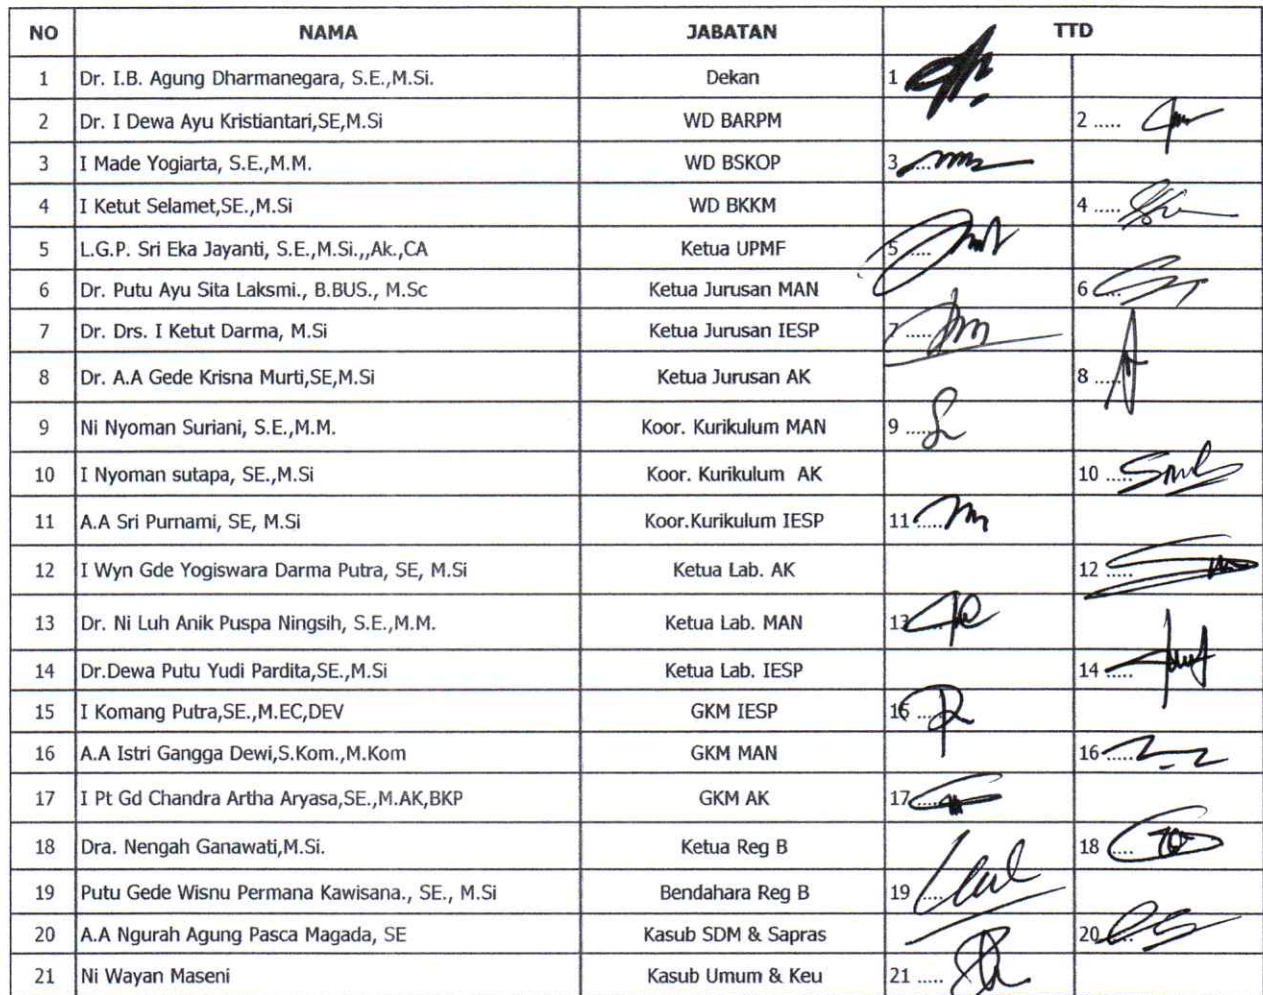 NO NAMA JABATAN TTD
1 Dr. I.B. Agung Dharmanegara, S.E.,M.Si. Dekan 1
2 Dr. I Dewa Ayu Kristiantari,SE,M.Si WD BARPM 2 .....
3 I Made Yogiarta, S.E.,M.M. WD BSKOP 3....
4 I Ketut Selamet,SE.,M.Si WD BKKM 4 .....
5 L.G.P. Sri Eka Jayanti, S.E.,M.Si.,,Ak.,CA Ketua UPMF 5 ....
6 Dr. Putu Ayu Sita Laksmi., B.BUS., M.Sc Ketua Jurusan MAN 6
7 Dr. Drs. I Ketut Darma, M.Si Ketua Jurusan IESP 7 .....
8 Dr. A.A Gede Krisna Murti,SE,M.Si Ketua Jurusan AK 8 .....
9 Ni Nyoman Suriani, S.E.,M.M. Koor. Kurikulum MAN 9 .....
10 I Nyoman sutapa, SE.,M.Si Koor. Kurikulum AK 10 .....
11 A.A Sri Purnami, SE, M.Si Koor.Kurikulum IESP 11 .....
12 I Wyn Gde Yogiswara Darma Putra, SE, M.Si Ketua Lab. AK 12 .....
13 Dr. Ni Luh Anik Puspa Ningsih, S.E.,M.M. Ketua Lab. MAN 13
14 Dr.Dewa Putu Yudi Pardita,SE.,M.Si Ketua Lab. IESP 14 .....
15 I Komang Putra,SE.,M.EC,DEV GKM IESP 15 .....
16 A.A Istri Gangga Dewi,S.Kom.,M.Kom GKM MAN 16 .....
17 I Pt Gd Chandra Artha Aryasa,SE.,M.AK,BKP GKM AK 17 .....
18 Dra. Nengah Ganawati,M.Si. Ketua Reg B 18 ....
19 Putu Gede Wisnu Permana Kawisana., SE., M.Si Bendahara Reg B 19 .....
20 A.A Ngurah Agung Pasca Magada, SE Kasub SDM & Sapras 20 ....
21 Ni Wayan Maseni Kasub Umum & Keu 21 .....